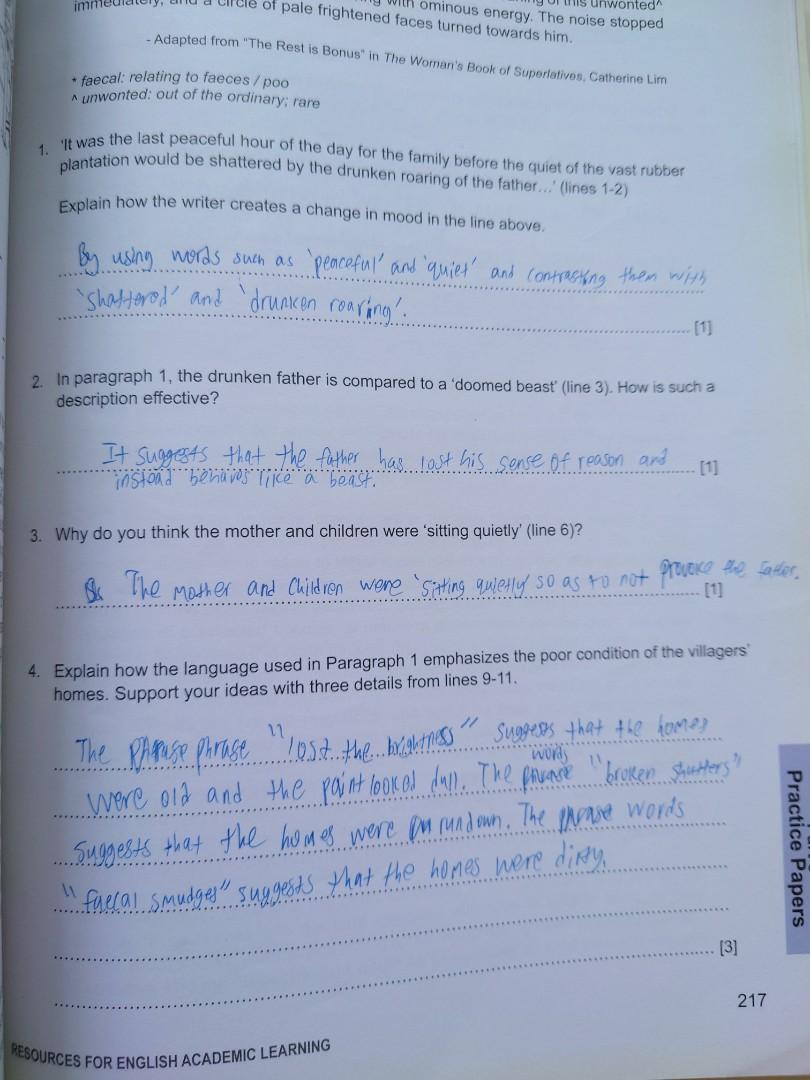 with ominous energy. The noise stopped
a circle of pale frightened faces turned towards him.
- Adapted from "The Rest is Bonus" in The Woman's Book of Superlatives, Catherine Lim
* faecal: relating to faeces / poo
^ unwonted: out of the ordinary; rare
1. 'It was the last peaceful hour of the day for the family before the quiet of the vast rubber
plantation would be shattered by the drunken roaring of the father...' (lines 1-2)
Explain how the writer creates a change in mood in the line above.
By using words such as 'peaceful' and 'quiet' and contrasting them with
'shattered' and 'drunken roaring'.
[1]
2. In paragraph 1, the drunken father is compared to a 'doomed beast' (line 3). How is such a
description effective?
It suggests that the father has lost his sense of reason and
instead behaves like a beast.
[1]
3. Why do you think the mother and children were 'sitting quietly' (line 6)?
The mother and children were 'sitting quietly' so as to not provoke the father.
[1]
4. Explain how the language used in Paragraph 1 emphasizes the poor condition of the villagers'
homes. Support your ideas with three details from lines 9-11.
The phrase "lost the brightness" suggests that the homes
were old and the paint looked dull. The words "broken shutters"
suggests that the homes were rundown. The words
"faecal smudges" suggests that the homes were dirty.
[3]
Practice Papers
217
RESOURCES FOR ENGLISH ACADEMIC LEARNING